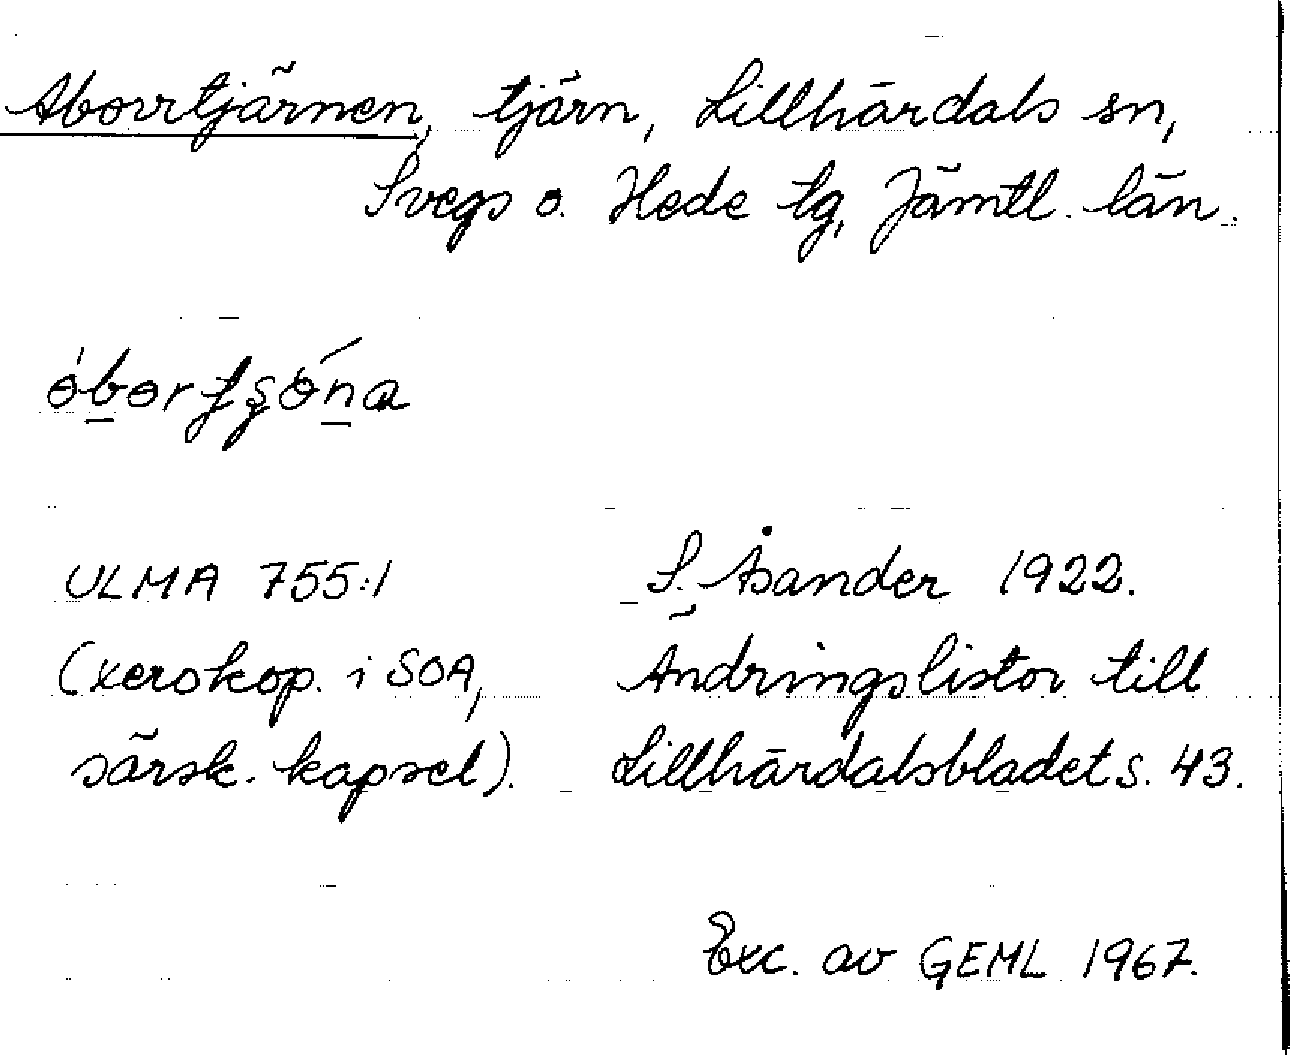 Abborrtjärnen, tjärn, Lillhärdals sn,
Svegs o. Hede tg, Jämtl. län.
ULMA 755:1
S. Åsander 1922.
(xerokop. i SOA,
Ändringslistor till
särsk. kapsel).
Lillhärdalsbladet s. 43.
Exc. av GEML 1967.